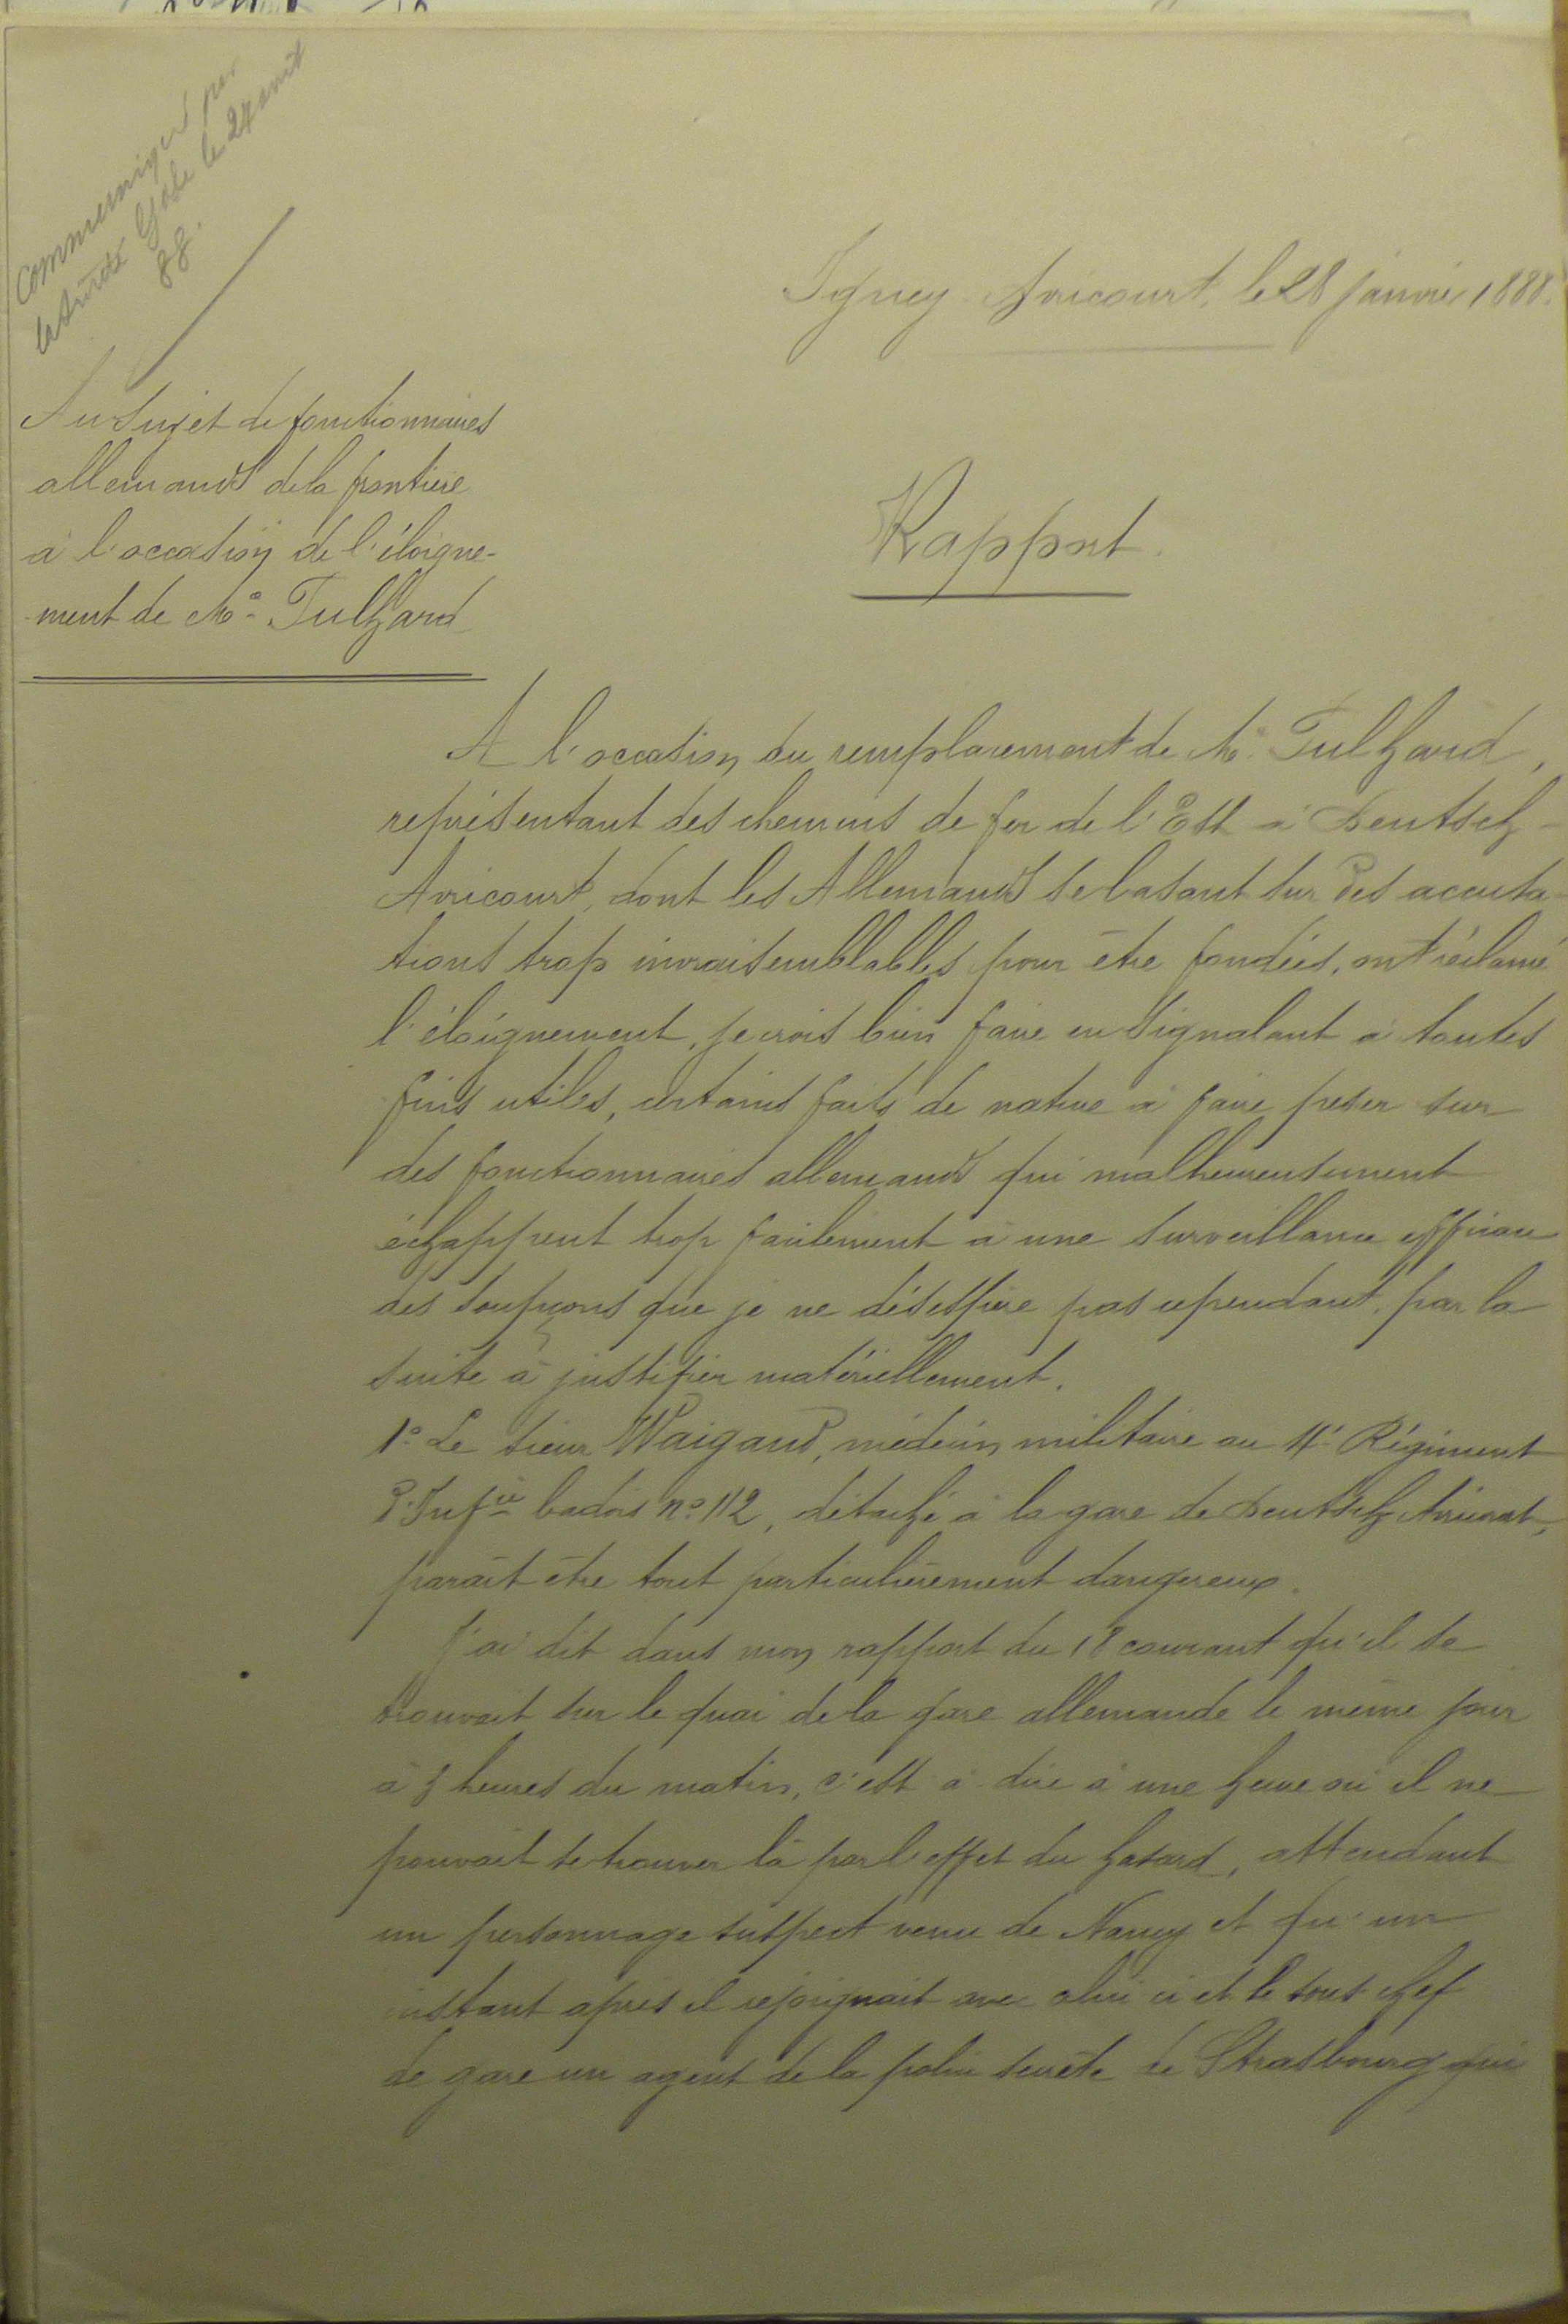 Communiqué par
la Sûreté Gale le 27 août
88.
Igney-Avricourt, le 28 janvier 1888.
Au sujet de fonctionnaires
allemands de la frontière
à l'occasion de l'éloigne-
ment de Mr. Tulhard
Rapport.
A l'occasion du remplacement de Mr. Tulhard,
représentant des chemins de fer de l'Est à Deutsch-
Avricourt, dont les Allemands se basant sur des accusa-
tions trop invraisemblables pour être fondées, ont réclamé
l'éloignement, je crois bien faire en signalant à toutes
fins utiles, certains faits de nature à faire peser sur
des fonctionnaires allemands qui malheureusement
échappent trop facilement à une surveillance efficace
des soupçons que je ne désespère pas cependant, par la
suite à justifier matériellement.
1o. Le sieur Waigand, médecin militaire au 4e Régiment
d'Infie badois no 112, détaché à la gare de Deutsch Avricourt,
paraît être tout particulièrement dangereux.
J'ai dit dans mon rapport du 18 courant qu'il se
trouvait sur le quai de la gare allemande le même jour
à 3 heures du matin, c'est à dire à une heure où il ne
pouvait se trouver là par l'effet du hasard, attendant
un personnage suspect venu de Nancy et qu'un
instant après il rejoignait avec celui ci et le sous chef
de gare un agent de la police secrète de Strasbourg qui